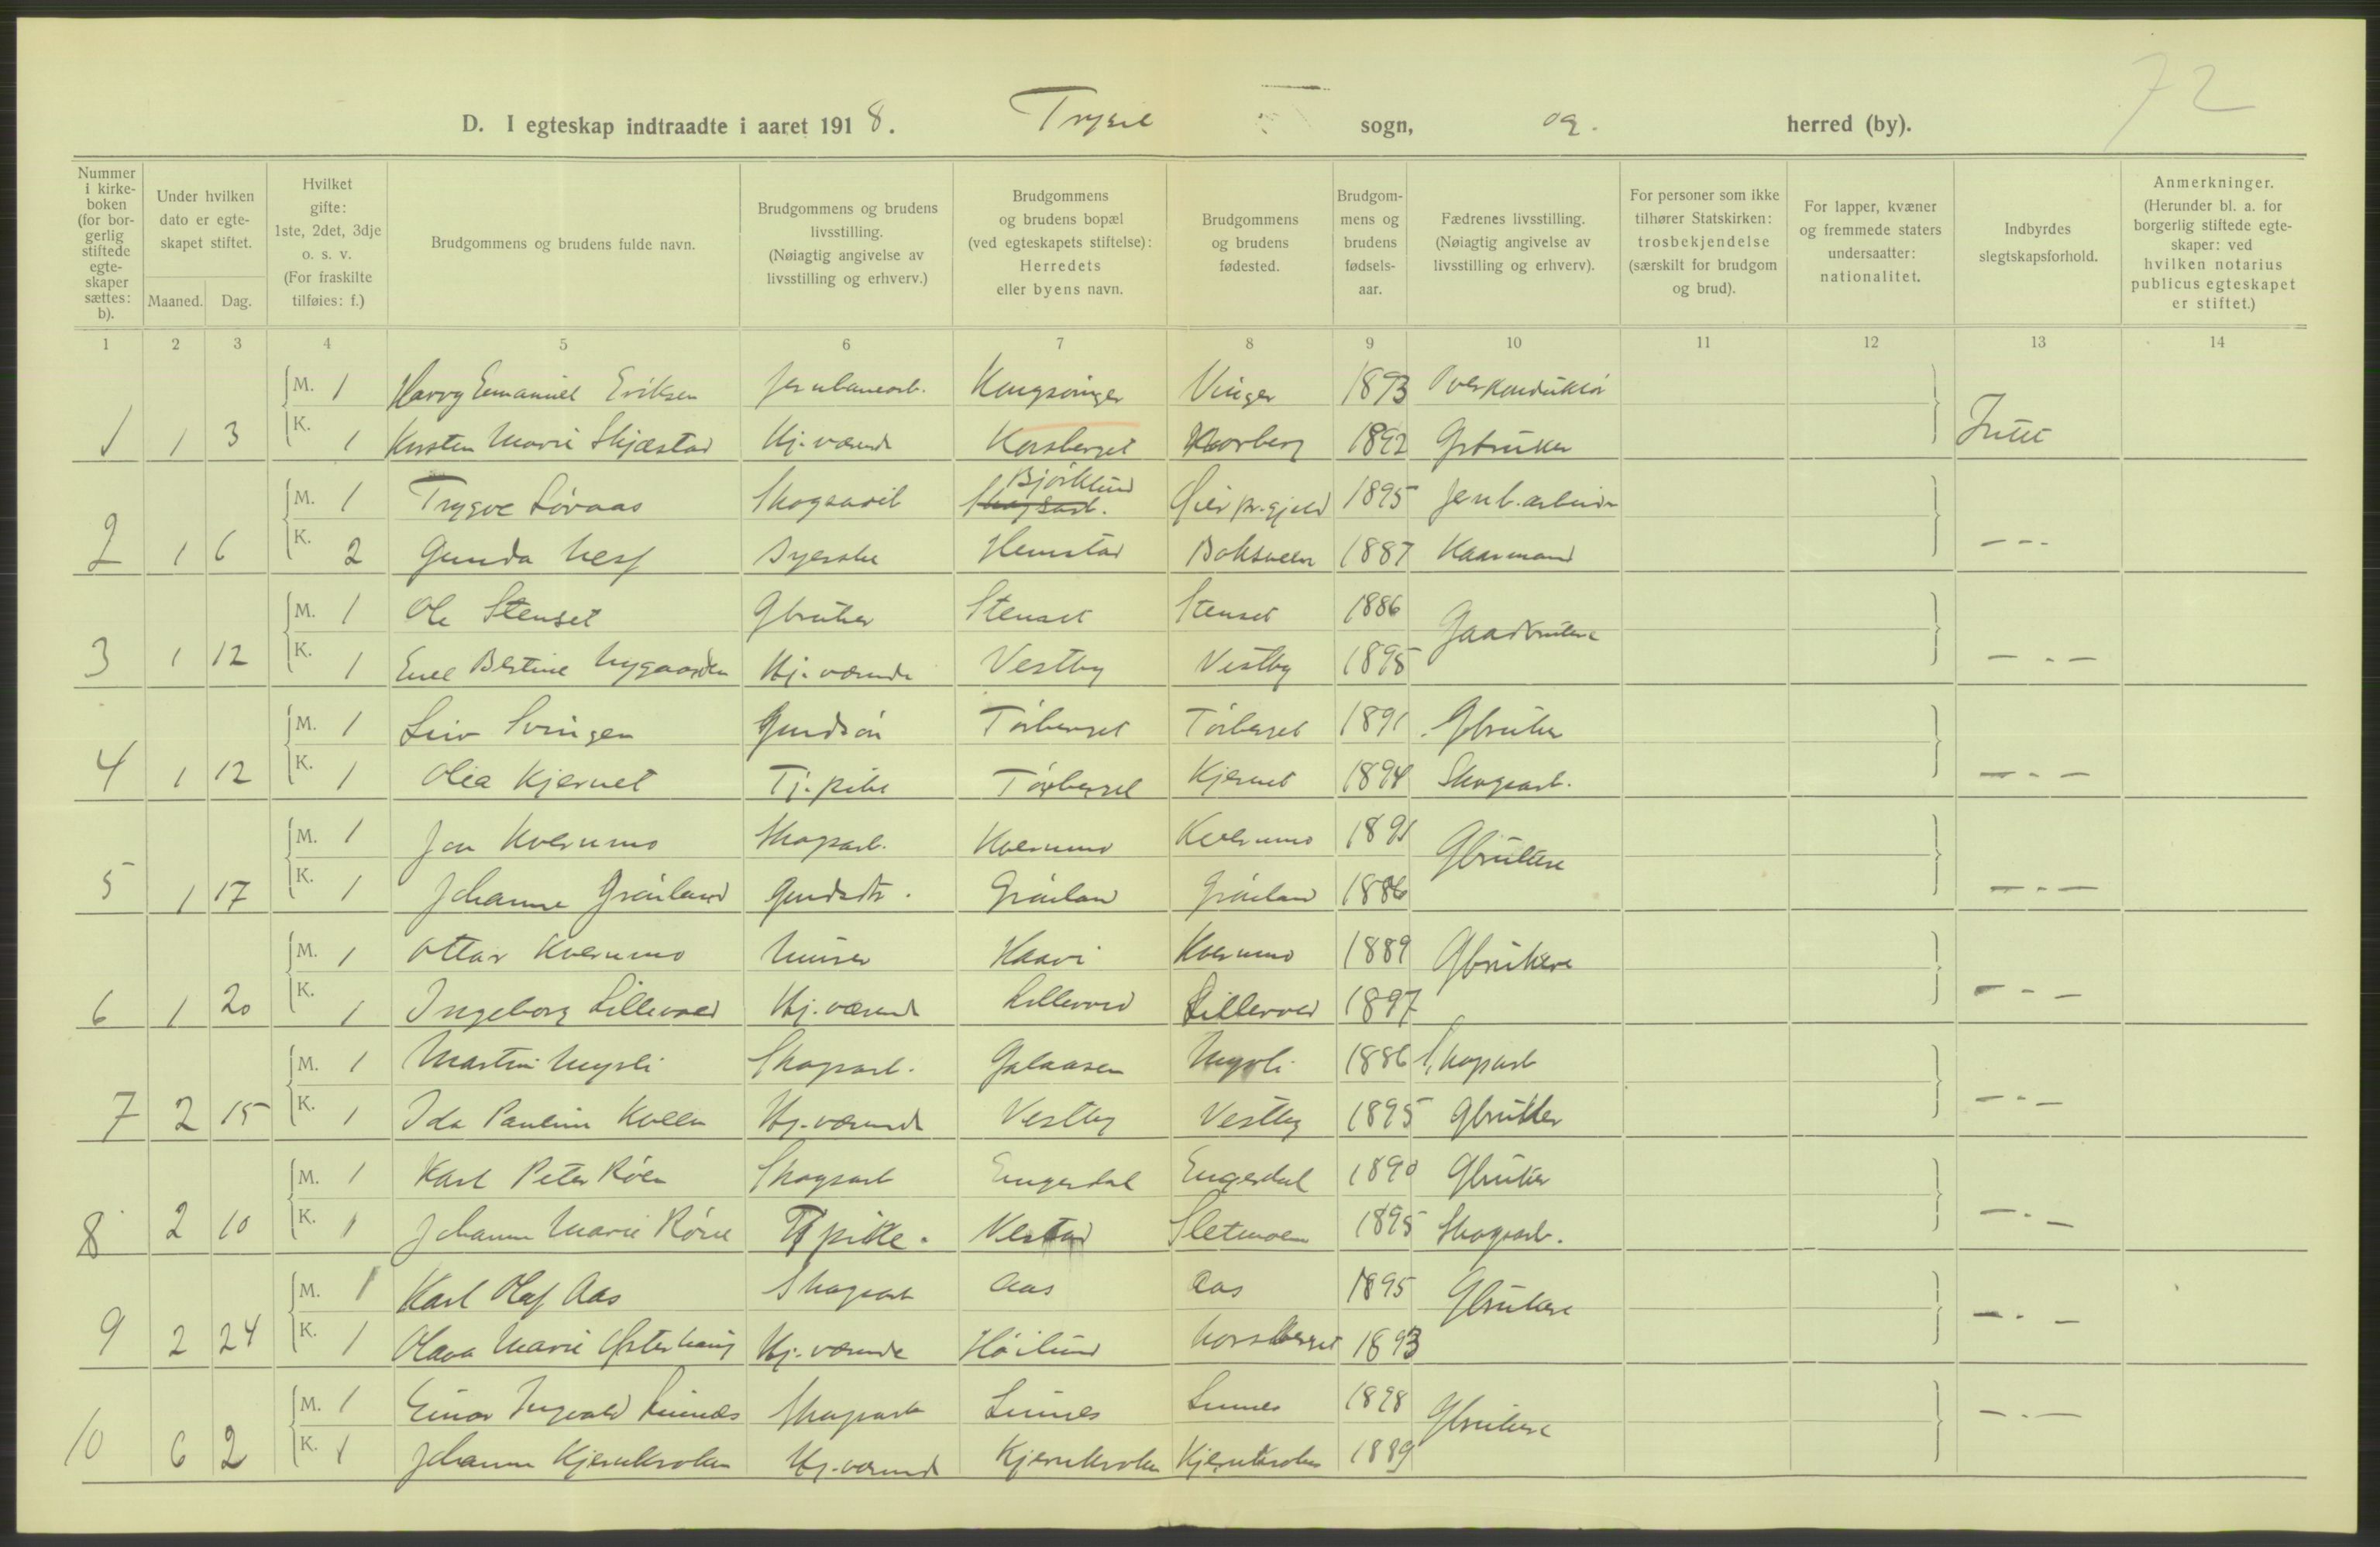 72
D. I egteskap indtraadte i aaret 1918. Trysil sogn, og. herred (by).
Nummer i kirkeboken (for borgerlig stiftede egteskaper sættes: b).
Under hvilken dato er egteskapet stiftet.
Maaned. Dag.
Hvilket gifte: 1ste, 2det, 3dje o. s. v. (For fraskilte tilføies: f.)
Brudgommens og brudens fulde navn.
Brudgommens og brudens livsstilling. (Nøiagtig angivelse av livsstilling og erhverv.)
Brudgommens og brudens bopæl (ved egteskapets stiftelse): Herredets eller byens navn.
Brudgommens og brudens fødested.
Brudgommens og brudens fødselsaar.
Fædrenes livsstilling. (Nøiagtig angivelse av livsstilling og erhverv).
For personer som ikke tilhører Statskirken: trosbekjendelse (særskilt for brudgom og brud).
For lapper, kvæner og fremmede staters undersaatter: nationalitet.
Indbyrdes slegtskapsforhold.
Anmerkninger. (Herunder bl. a. for borgerlig stiftede egteskaper: ved hvilken notarius publicus egteskapet er stiftet.)
1 2 3 4 5 6 7 8 9 10 11 12 13 14
M. 1 Harry Emanuel Eriksen Jernbanearb. Kongsvinger Vinger 1893 Overkonduktør
1 1 3 K. 1 Kirsten Marie Skjæstad Hj. værende Korsberget 1892 Gbruker Intet
Bjørklund
M. 1 Trygve Løvaas Skogsarb Skogsarb. 1895 Jernb. arbeider
2 1 6 K. 2 Gunda Syerske Hemstad 1887 - - -
M. 1 Ole Stenset Gbruker Stenset Stenset 1886 Gaardbrukere
3 1 12 K. 1 Bertine Nygaarden Hj. værende Vestby Vestby 1895 - - -
M. 1 Leiv Svingen Gmdsøn Tørberget Tørberget 1891 Gbruker
4 1 12 K. 1 Olea Kjernet Tj. pike Tørberget Kjernet 1894 Skogsarb. - - -
M. 1 Jon Kvernmo Skogsarb. Kvernmo Kvernmo 1891 Gbrukere
5 1 17 K. 1 Johanne Grønland Gmdsdtr. Grønland Grønland 1886 - - -
M. 1 Ottar Kvernmo Murer Haavi Kvernmo 1889 Gbrukere
6 1 20 K. 1 Ingeborg Lillevold Hj. værende Lillevold Lillevold 1897 - - -
M. 1 Martin Nysli Skogsarb. Galaasen Nysli 1886 Skogsarb
7 2 15 K. 1 Ida Pauline Kveen Hj. værende Vestby Vestby 1895 Gbruker - - -
M. 1 Karl Peter Røen Skogsarb Engerdal Engerdal 1890 Gbruker
8 2 10 K. 1 Johanne Marie Tj pike. Sletmoen 1895 Skogsarb. - - -
M. 1 Karl Olaf Aas Skogsarb Aas Aas 1895 Gbrukere
9 2 24 K. 1 Olava Marie Østerhaug Hj. værende Høilund Norsberget 1893 - - -
M. 1 Einar Ingvald Lunnes Skogsarb Lunnes Lunnes 1898 Gbrukere
10 6 2 K. 1 Johanne Kjernkroken Hj. værende Kjernkroken Kjernkroken 1889 - - -